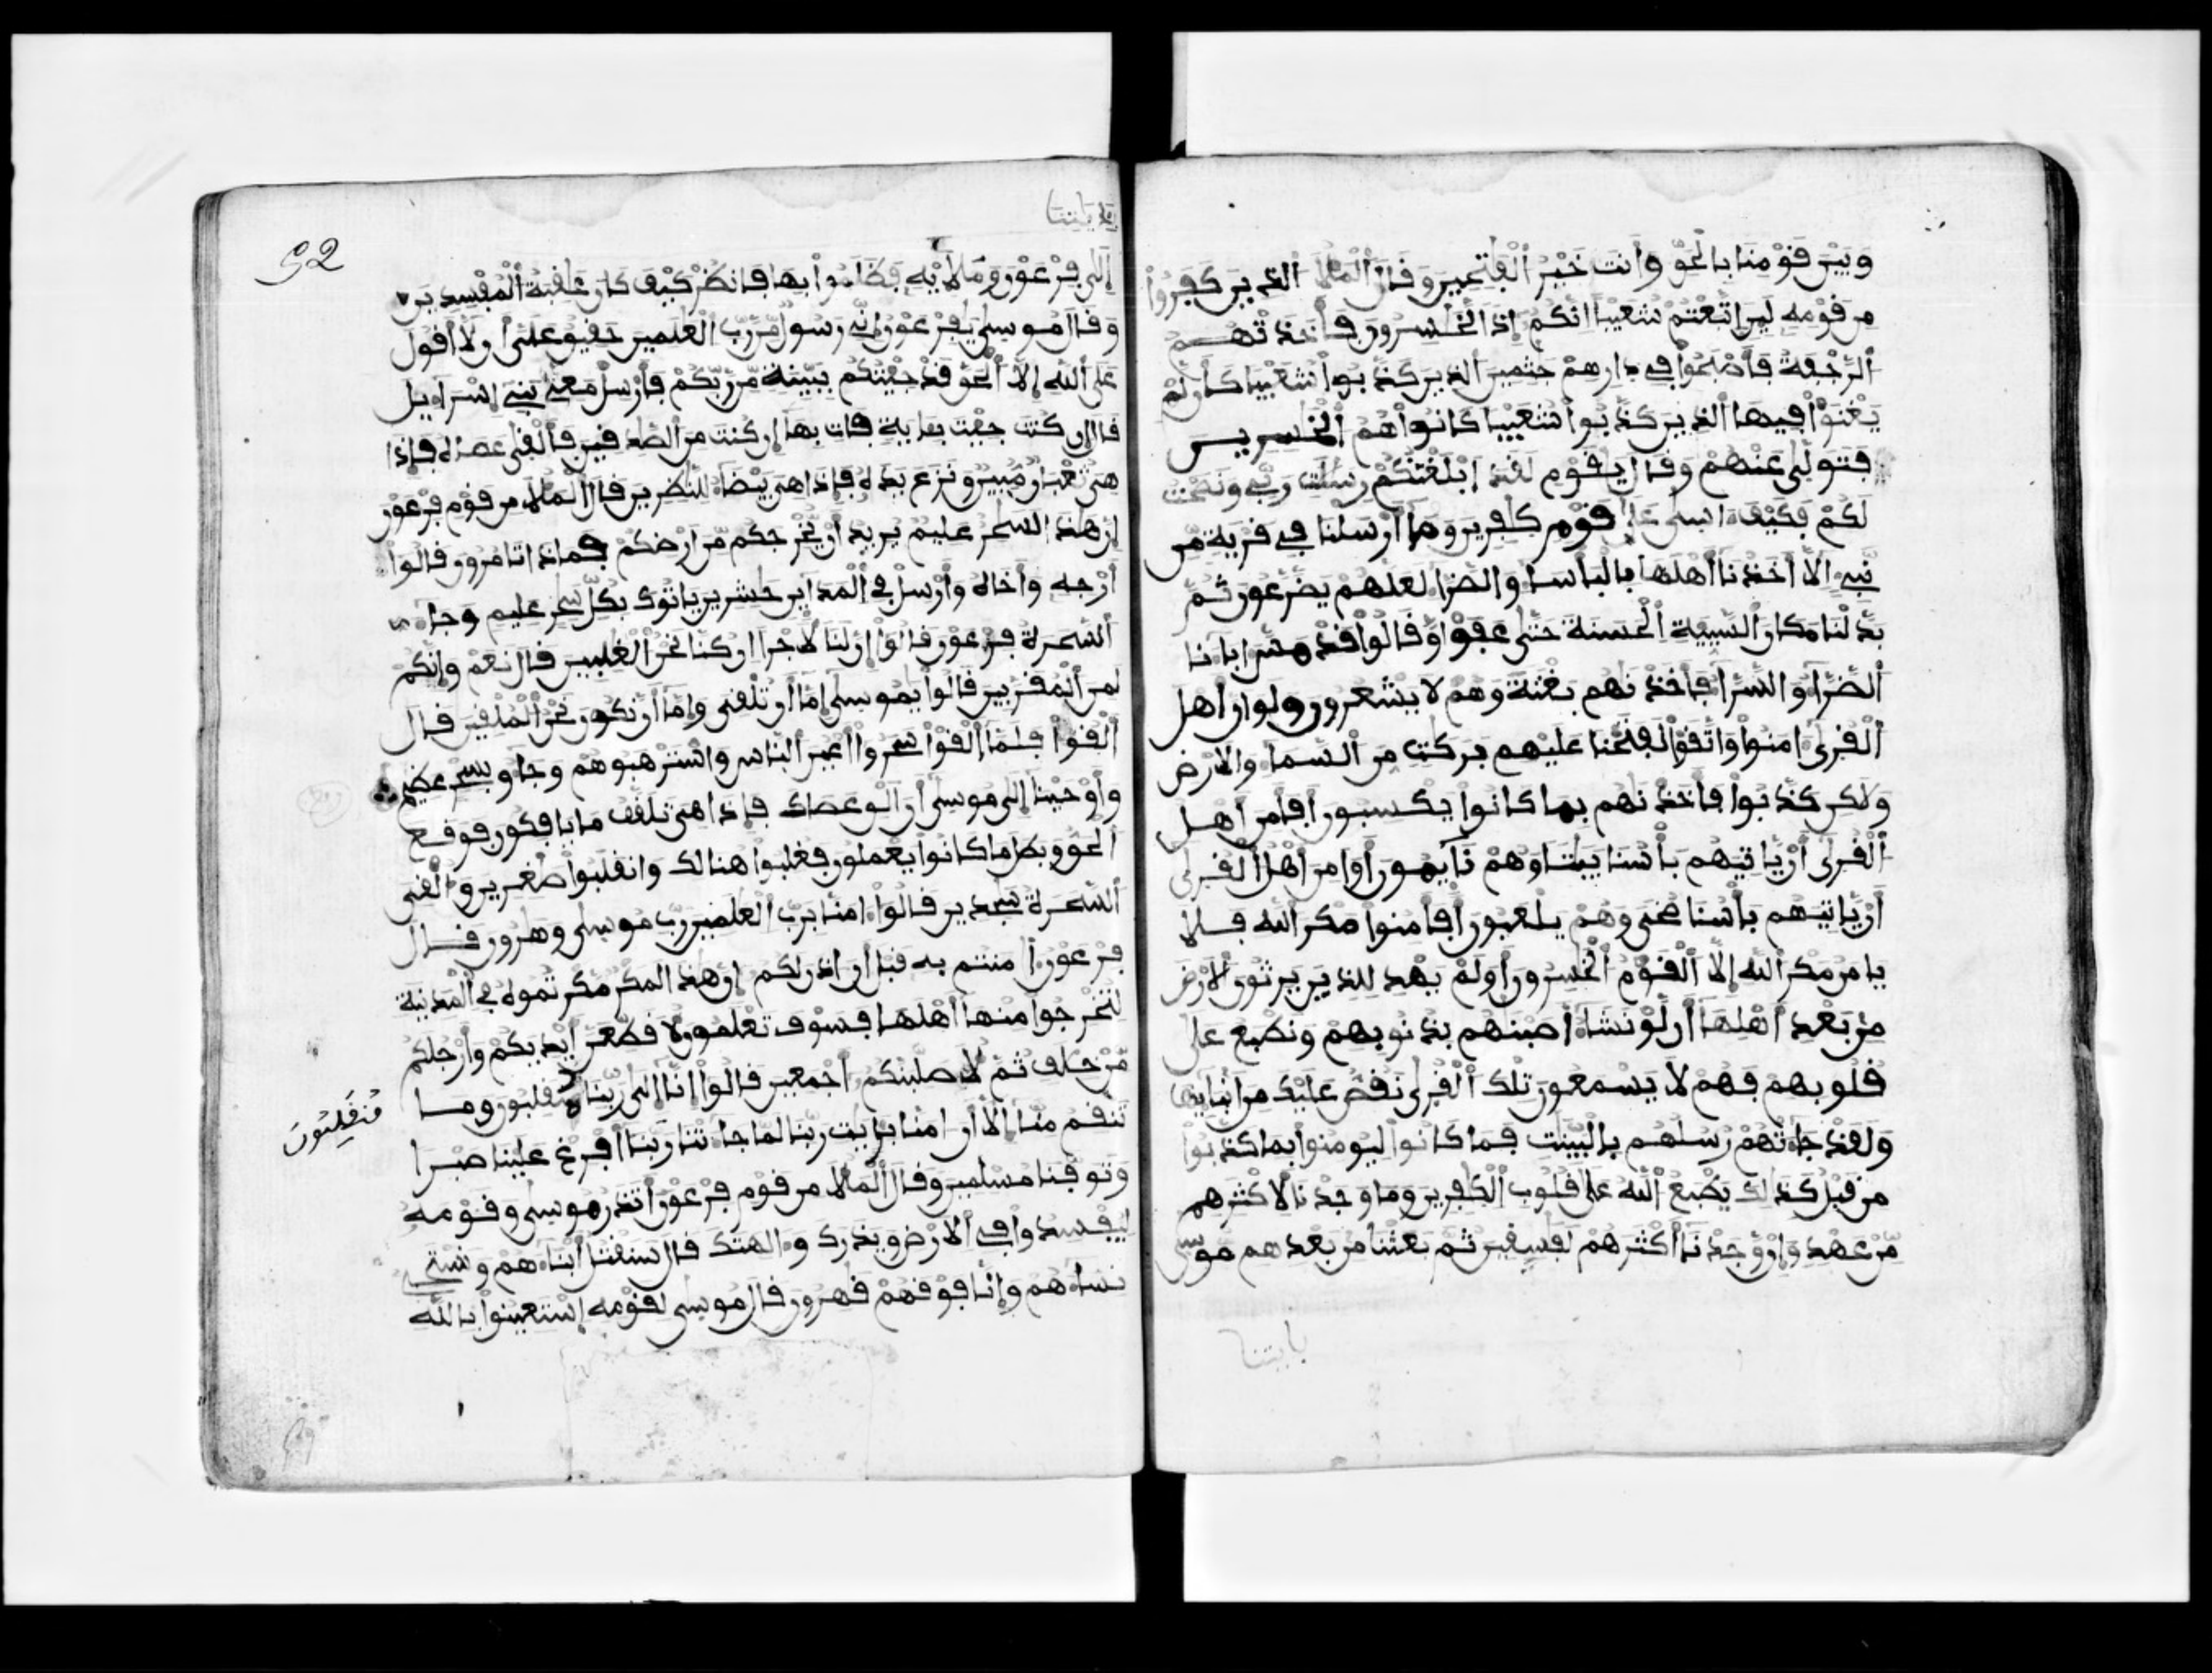 وبين قومنا بالحق وأنت خير الفتحين وقال الملأ الذين كفروا
من قومه لين اتبعتم شعيبا انكم إذا لخسرون فأخذتهم
الرجفة فأصبحوا في دارهم جثمين الذين كذبوا شعيبا كأن لم
يغنوا فيها الذين كذبوا شعيبا كانوا هم الخسرين
فتولى عنهم وقال يقوم لقد ابلغتكم رسلت ربي ونصحت
لكم فكيف اسى على قوم كفرين وما أرسلنا في قرية من
نبي إلا أخذنا أهلها بالبأسا والضرا لعلهم يضرعون ثم
بدلنا مكان السيية الحسنة حتى عفوا وقالوا قد مس ابانا
الضرا والسرا فأخذنهم بغتة وهم لا يشعرون ولو ان اهل
القرى امنوا واتقوا لفتحنا عليهم بركت من السما والارض
ولكن كذبوا فأخذنهم بما كانوا يكسبون افأمن اهل
القرى أن ياتيهم بأسنا بيتا وهم نايمون أو امن اهل القرى
أن ياتيهم بأسنا ضحى وهم يلعبون أفأمنوا مكر الله فلا
يامن مكر الله إلا القوم الخسرون أولم يهد للذين يرثون الأرض
من بعد أهلها أن لو نشا أصبنهم بذنوبهم ونطبع على
قلوبهم فهم لا يسمعون تلك القرى نقص عليك من أنبايها
ولقد جاتهم رسلهم بالبينت فما كانوا ليومنوا بما كذبوا
من قبل كذلك يطبع الله على قلوب الكفرين وما وجدنا لأكثرهم
من عهد وإن وجدنا أكثرهم لفسقين ثم بعثنا من بعدهم موسى
بايتنا
بايتنا
52
إلى فرعون وملايه فظلموا بها فانظر كيف كان عقبة المفسدين
وقال موسى يفرعون إني رسول من رب العلمين حقيق على أن لا أقول
على الله إلا الحق قد جيتكم ببينة من ربكم فأرسل معي بني إسرايل
قال إن كنت جيت بـاية فات بها إن كنت من الصدقين فألقى عصاه فإذا
هي ثعبان مبين ونزع يده فإذا هي بيضا للنظرين قال الملأ من قوم فرعون
إن هذا لسحر عليم يريد أن يخرجكم من أرضكم فماذا تامرون قالوا
أرجه وأخاه وأرسل في المداين حشرين ياتوك بكل سحر عليم وجا
السحرة فرعون قالوا إن لنا لأجرا إن كنا نحن الغلبين قال نعم وإنكم
لمن المقربين قالوا يموسى إما أن تلقي وإما أن نكون نحن الملقين قال
القوا فلما ألقوا سحروا أعين الناس واسترهبوهم وجاو بسحر عظيم
وأوحينا إلى موسى أن الق عصاك فإذا هي تلقف ما يافكون فوقع
الحق وبطل ما كانوا يعملون فغلبوا هنالك وانقلبوا صغرين وألقي
السحرة سجدين قالوا امنا برب العلمين رب موسى وهرون قال
فرعون أمنتم به قبل أن اذن لكم إن هذا لمكر مكرتموه في المدينة
لتخرجوا منها أهلها فسوف تعلمون لأقطعن أيديكم وأرجلكم
من خلف ثم لأصلبنكم أجمعين قالوا إنا إلى ربنا منقلبون وما
منقلبون
تنقم منا إلا أن امنا بايت ربنا لما جاتنا ربنا أفرغ علينا صبرا
وتوفنا مسلمين وقال الملأ من قوم فرعون أتذر موسى وقومه
ليفسدوا في الارض ويذرك والهتك قال سنقتل أبناهم ونستحي
نساهم وإنا فوقهم قهرون قال موسى لقومه إستعينوا بالله